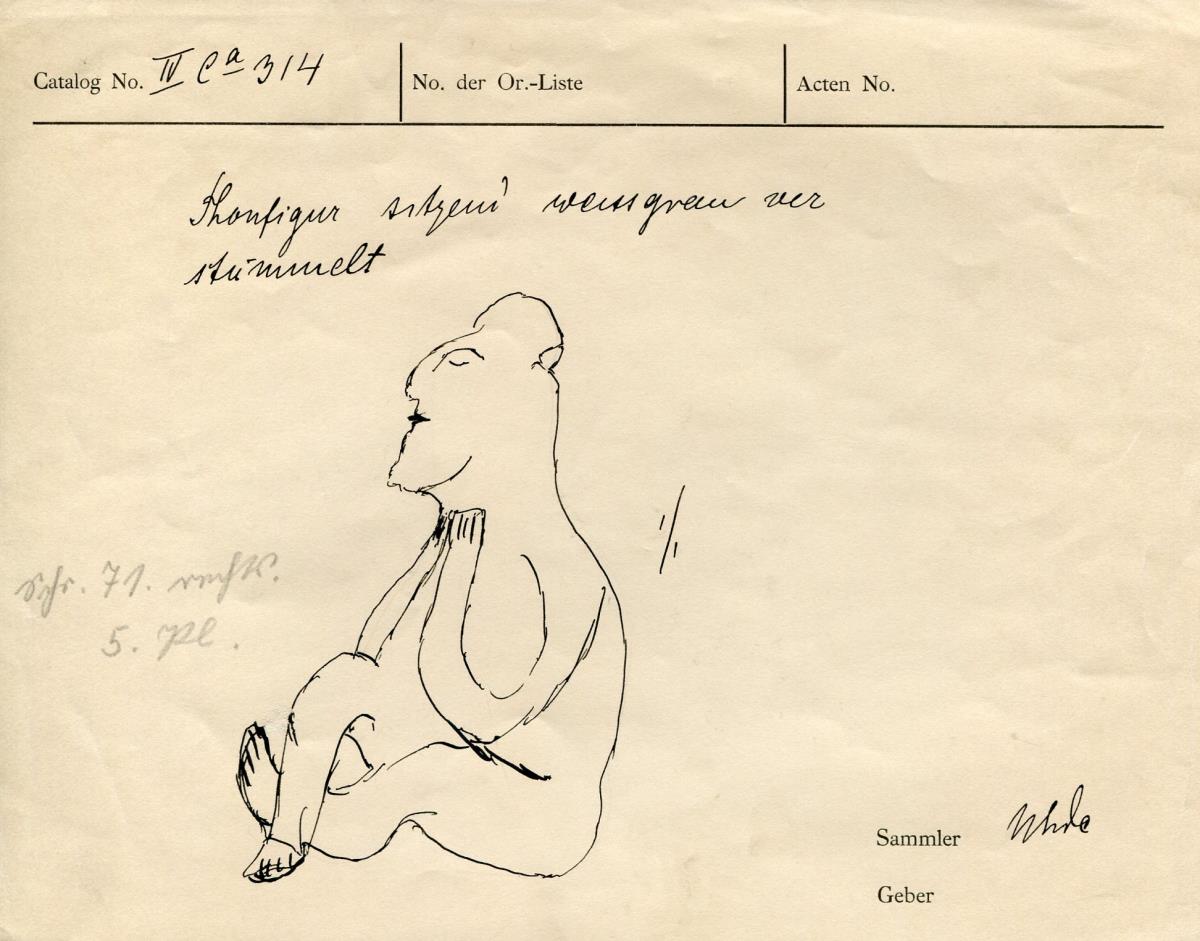 Catalog No. IV Ca 314
No. der Or.-Liste
Acten No.
Thonfigur sitzend weissgrau ver
stümmelt
1/1
Schr. 71. rechts.
5. Pl.
Sammler Uhde
Geber